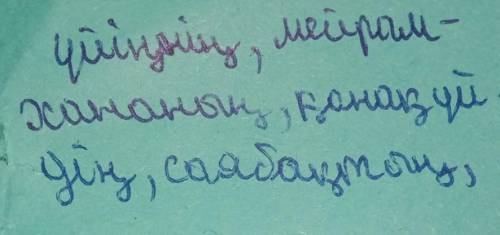 үйіңнің, мейрам-
хананың, қонақүй
дің, саябақтың,